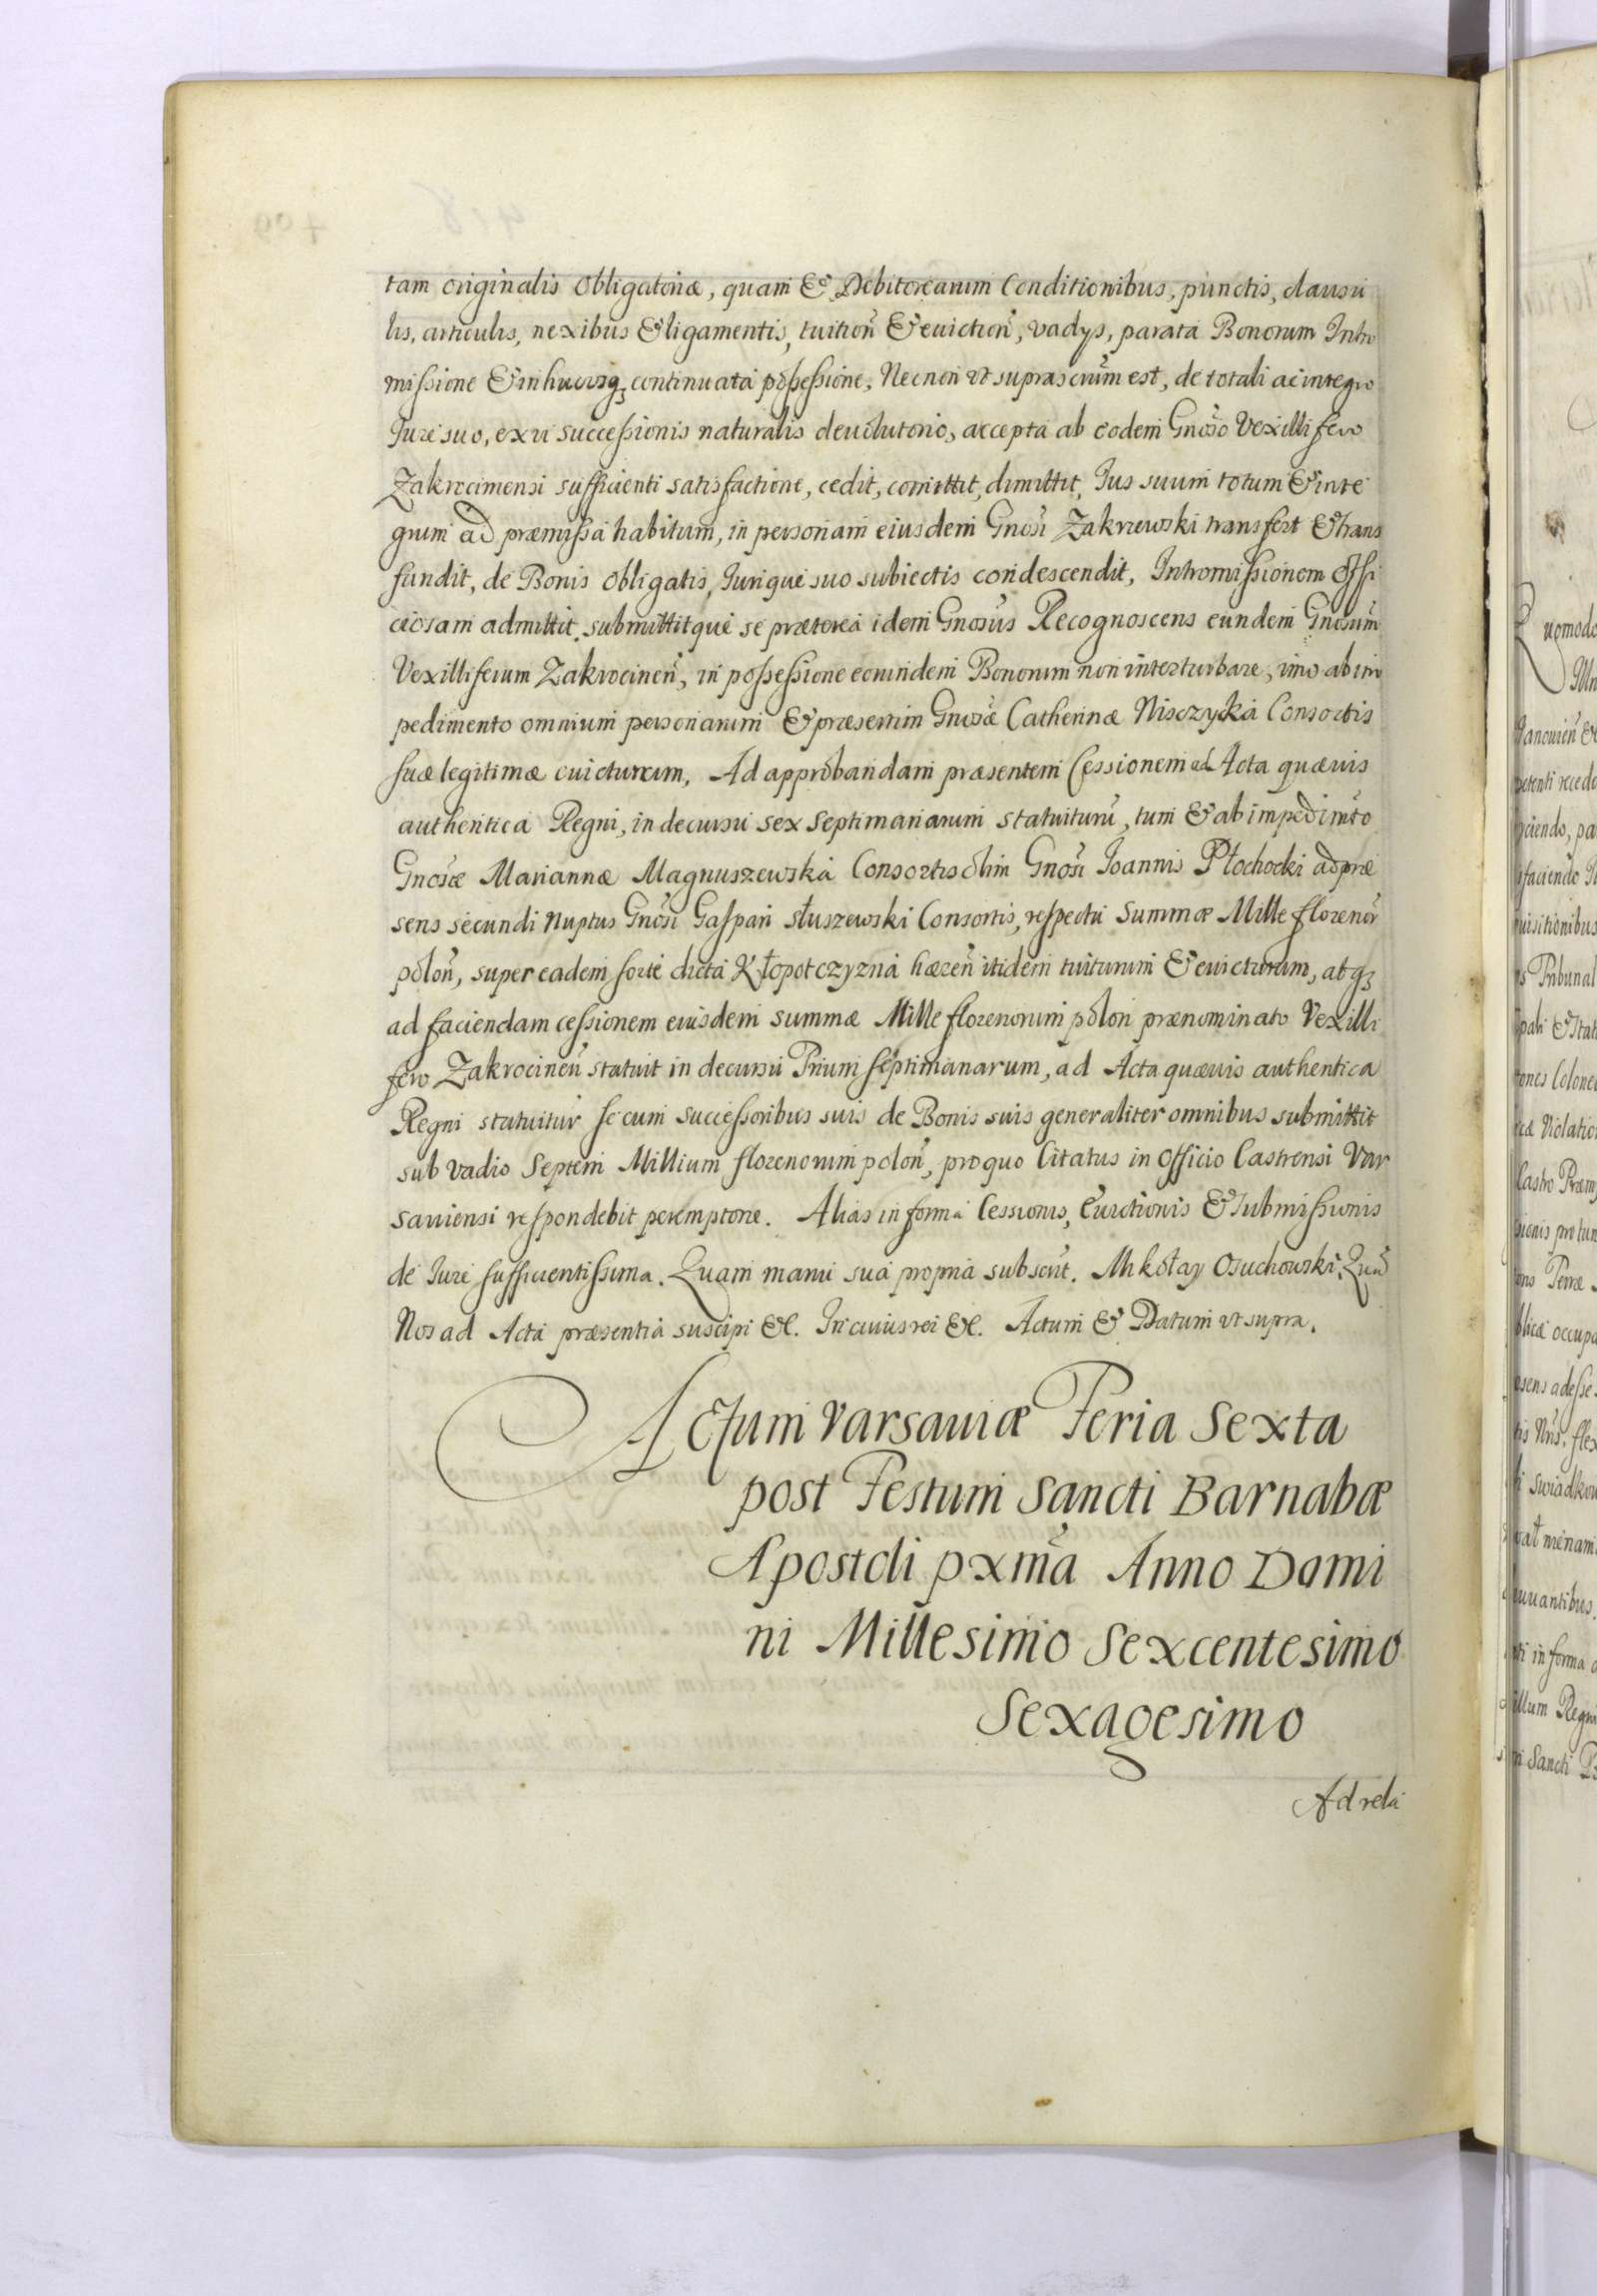 tam originalis obligatoriæ, quam & Debitorearum Conditionibus, punctis, clausu
lis, articulis, nexibus & ligamentis, tuitioñ & euictioñ, vadys, parata Bonorum Intro
missione & inhucusq₃ continuata possessione, Necnon vt suprascrium est, de totali ac integro
Jure suo, ex vi successionis naturalis deuolutorio, accepta ab eodem Gnoso Vexillifero
Zakrocimensi sufficienti satisfactione, cedit, comittit, dimittit, Jus suum totum & inte
grum ad præmissa habitum, in personam eiusdem Gnosi Zakrzewski transfert & trans
fundit, de Bonis obligatis, Jurique suo subiectis condescendit, Intromissionem offi
ciosam admittit, submittitque se præterea idem Gnosus Recognoscens eundem Gnosum
Vexilliferum Zakrocineñ, in possessione eorundem Bonorum non interturbare, imo ab im
pedimento omnium personarum & præsertim Gnosæ Catherinæ Nisczycka Consortis
suæ legitimæ euicturum, Ad approbandam præsentem Cessionem ad Acta quæuis
authentica Regni, in decursu sex septimanarum statuiturũ, tum & ab impedimto
Gnosæ Mariannæ Magnuszewska Consortis olim Gnosi Joannis Płochocki ad præ
sens secundi Nuptus Gnosi Gaspari słuszewski Consortis, respectu Summæ Mille florenor
poloñ, super eadem sorte dicta Kłopotczyzna hæreñ itidem tuiturum & euicturum, atq₃
ad faciendam cessionem eiusdem summæ Mille florenorum polon prænominato Vexilli
fero Zakrocineñ statuit in decursu Trium septimanarum, ad Acta quæuis authentica
Regni statuitur se cum successoribus suis de Bonis suis generaliter omnibus submittit
sub vadio Septem Millium florenorum poloñ, pro quo Citatus in Officio Castrensi Var
sauiensi respondebit peremptorie. Alias in forma Cessionis, Euictionis & Submissionis
de Jure sufficientissima. Quam manu sua propria subscrit. Mikołay Osuchowski. Quã
Nos ad Acta præsentia suscipi &c. In cuius rei &c. Actum & Datum vt supra.
Actum Varsauiæ Feria Sexta
post Festum Sancti Barnabæ
Apostoli pxma Anno Domi
ni Millesimo Sexcentesimo
Sexagesimo
Ad rela